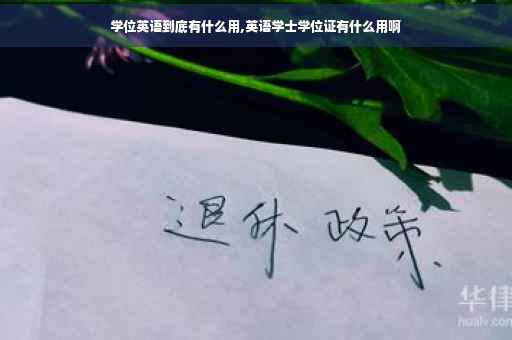 学位英语到底有什么用,英语学士学位证有什么用啊
退休 政策
华律
hualv.com